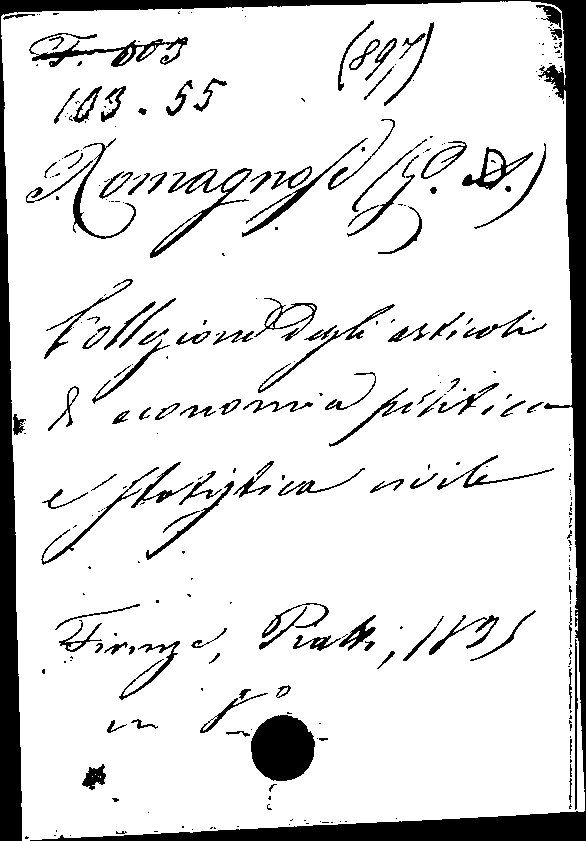 T. 003 (897)
103.55
Romagnosi (G. D.)
Collezione degli articoli
di economia politica
e statistica civile
Firenze, Piatti, 1835
in 8°